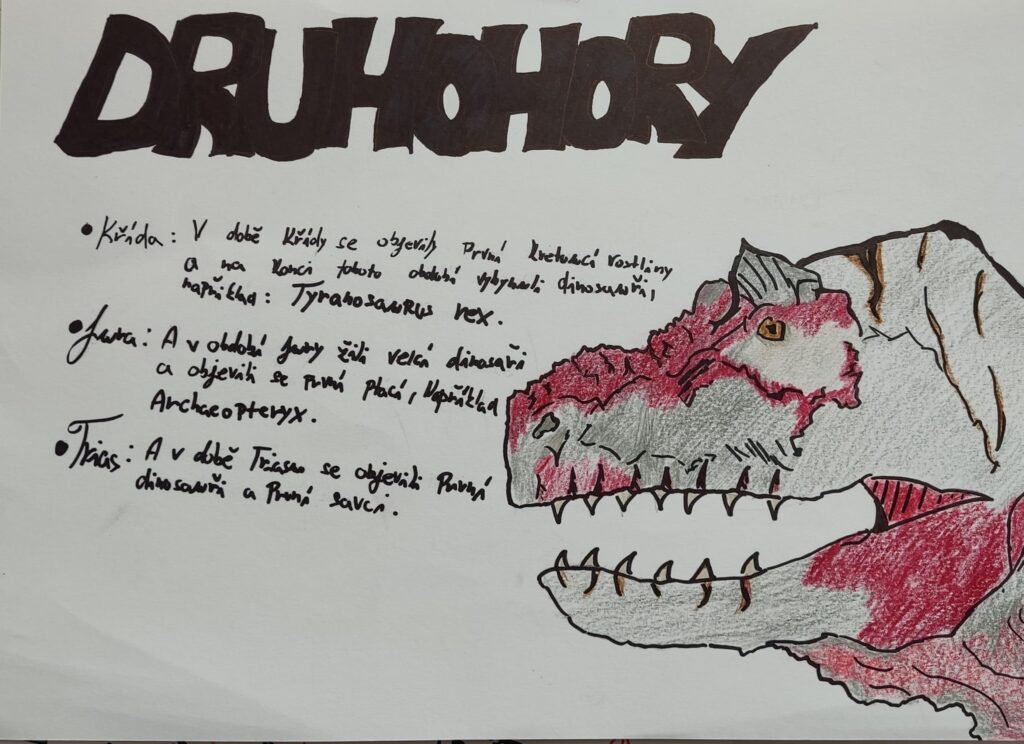 DRUHOHORY
• Křída: V době Křídy se objevily První kvetoucí rostliny
a na konci tohoto období vyhynuli dinosauři,
například: Tyranosaurus rex.
• Jura: A v období Jury žili velcí dinosauři
a objevili se první ptáci, Například
Archaeopteryx.
• Trias: A v době Triasu se objevili První
dinosauři a První savci.